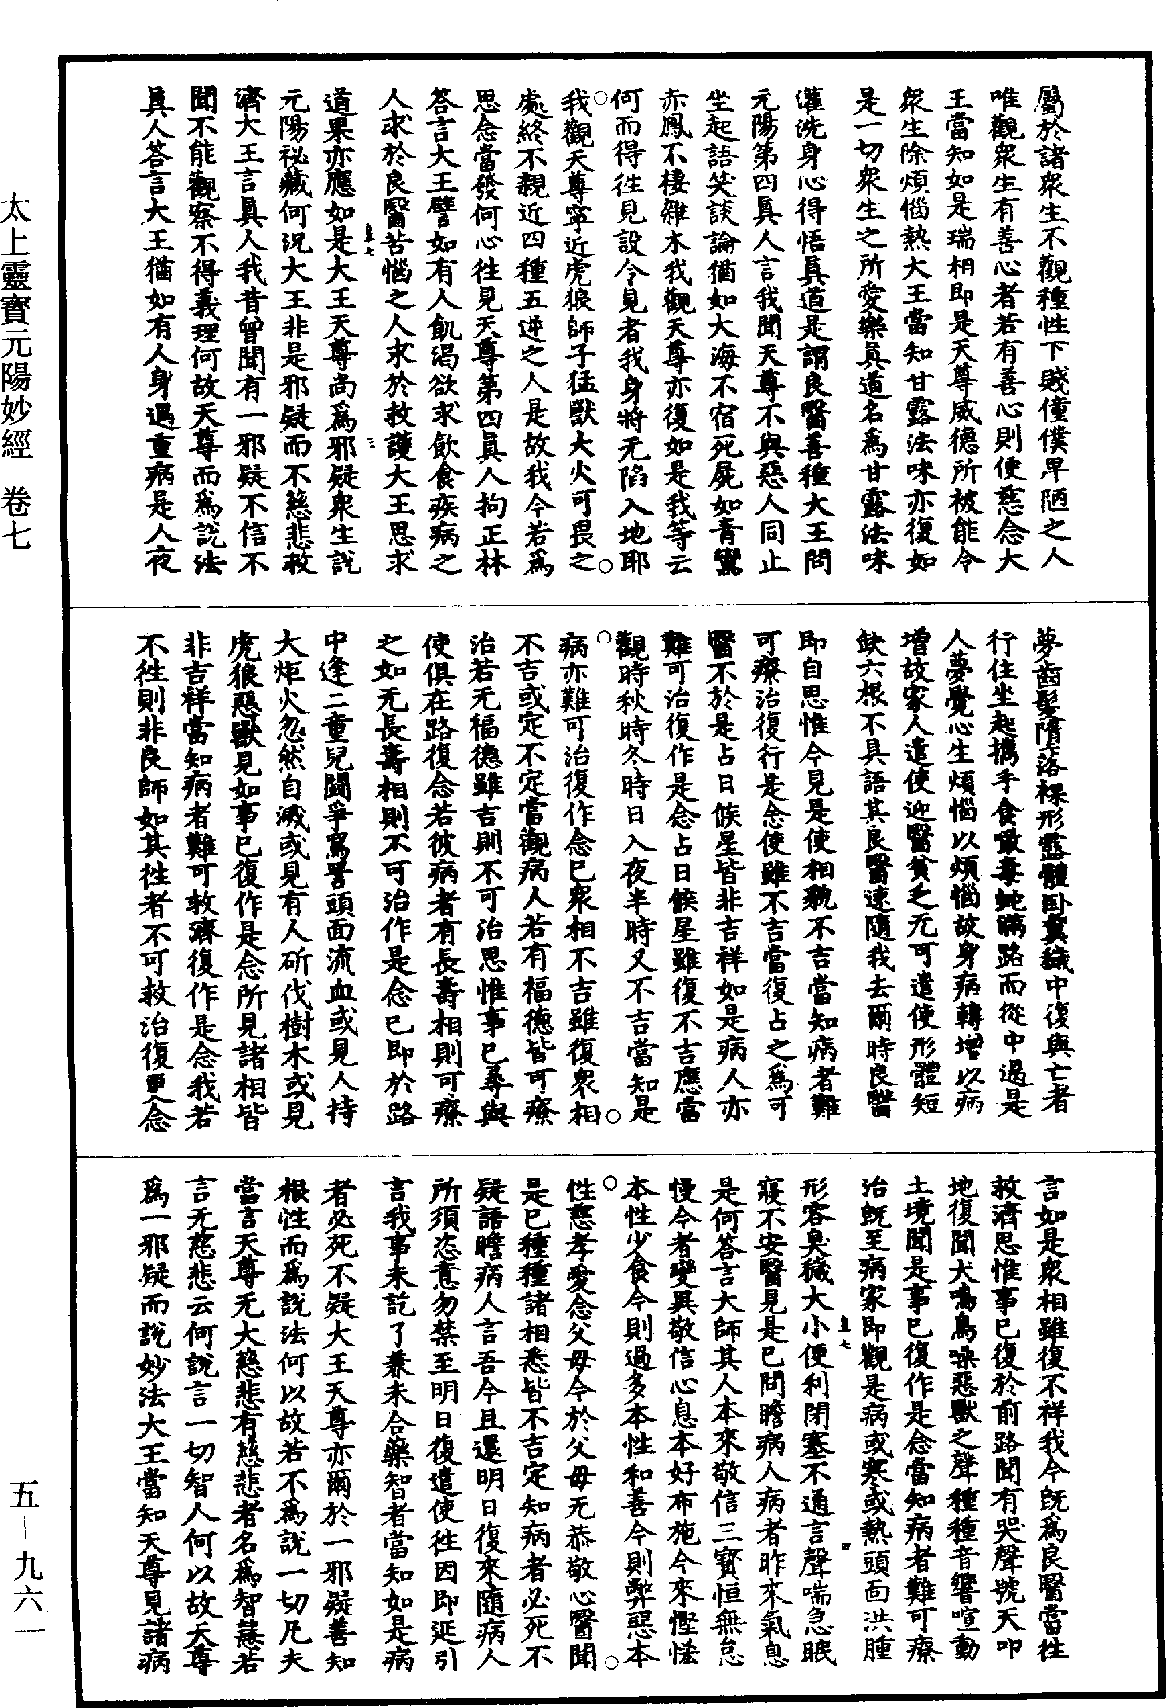 屬於諸眾生不觀種性下賤僮僕卑陋之人
唯觀眾生有善心者若有善心則便慈念大
王當知如是瑞相即是天尊威德所被能令
眾生除煩惱熱大王當知甘露法味亦復如
是一切眾生之所愛樂真道名為甘露法味
灌洗身心得悟真道是謂良醫善種大王問
元陽第四真人言我聞天尊不與惡人同止
坐起語笑談論猶如大海不宿死屍如青鸞
亦鳳不棲雜木我觀天尊亦復如是我等云
何而得徃見設令見者我身將无陷入地耶
我觀天尊寧近虎狼師子猛獸大火可畏之
處終不親近四種五逆之人是故我今若為
思念當發何心徃見天尊第四真人拘正林
答言大王譬如有人飢渴欲求飲食疾病之
人求於良醫苦惱之人求於救護大王思求
道果亦應如是大王天尊尚為邪疑眾生說
元陽祕藏何況大王非是邪疑而不慈悲救
濟大王言真人我昔曾聞有一邪疑不信不
聞不能觀察不得義理何故天尊而為說法
真人答言大王猶如有人身遇重病是人夜
夢齒髮墮落裸形露體臥糞穢中復與亡者
行住坐起攜手食噉毒蛇滿路而從中過是
人夢覺心生煩惱以煩惱故身病轉增以病
增故家人遣使迎醫貧乏无可遣使形體短
缺六根不具語其良醫速隨我去爾時良醫
即自思惟今見是使相貌不吉當知病者難
可療治復行是念使雖不吉當復占之為可
醫不於是占日候星皆非吉祥如是病人亦
難可治復作是念占日候星雖復不吉應當
觀時秋時冬時日入夜半時又不吉當知是
病亦難可治復作念已眾相不吉雖復眾相
不吉或定不定當觀病人若有福德皆可療
治若无福德雖吉則不可治思惟事已尋與
使俱在路復念若彼病者有長壽相則可療
之如无長壽相則不可治作是念已即於路
中逢二童兒鬭爭為詈頭面流血或見人持
大炬火忽然自滅或見有人斫伐樹木或見
虎狼惡獸見如事已復作是念所見諸相皆
非吉祥當知病者難可救濟復作是念我若
不徃則非良師如其徃者不可救治復更念
言如是眾相雖復不祥我今既為良醫當徃
救濟思惟事已復於前路聞有哭聲號天叩
地復聞犬鳴鳥噪惡獸之聲種種音響喧動
土境聞是事已復作是念當知病者難可療
治既至病家即觀是病或寒或熱頭面洪腫
形容臭穢大小便利閉塞不通言聲喘急眠
寢不安醫見是已問瞻病人病者昨來氣息
是何答言大師其人本來敬信三寶恒無怠
慢今者變異敬信心息本好布施今來慳悋
本性少食今則過多本性和善今則弊惡本
性慈孝愛念父母今於父母无恭敬心醫聞
是已種種諸相悉皆不吉定知病者必死不
疑語瞻病人言吾今且還明日復來隨病人
所須恣意勿禁至明日復遣使徃因即延引
言我事未訖了兼未合藥智者當知如是病
者必死不疑大王天尊亦爾於一邪疑善知
根性而為說法何以故若不為說一切凡夫
當言天尊无大慈悲有慈悲者名為智慧若
言无慈悲云何說言一切智人何以故天尊
為一邪疑而說妙法大王當知天尊見諸病
太上靈寶元陽妙經　卷七
五－九六一